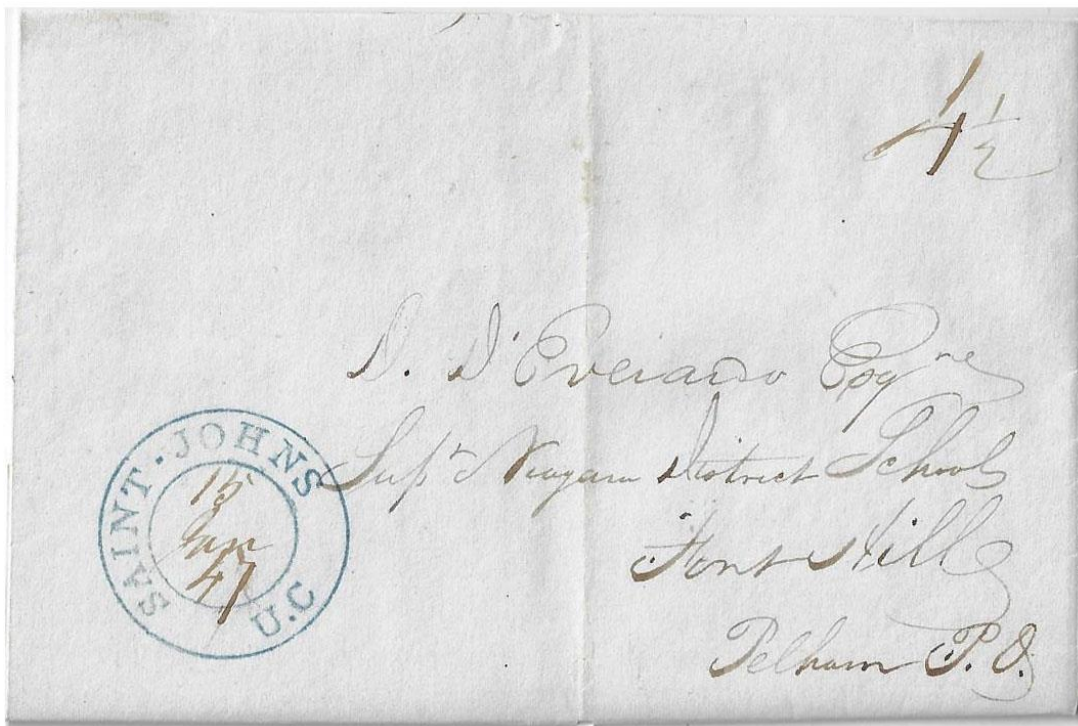 4 1/2
D. D'Everardo Esqre
Supt Niagara District Schools
Font Hill
Pelham P.O.
SAINT-JOHNS
15
Jan
47
U.C